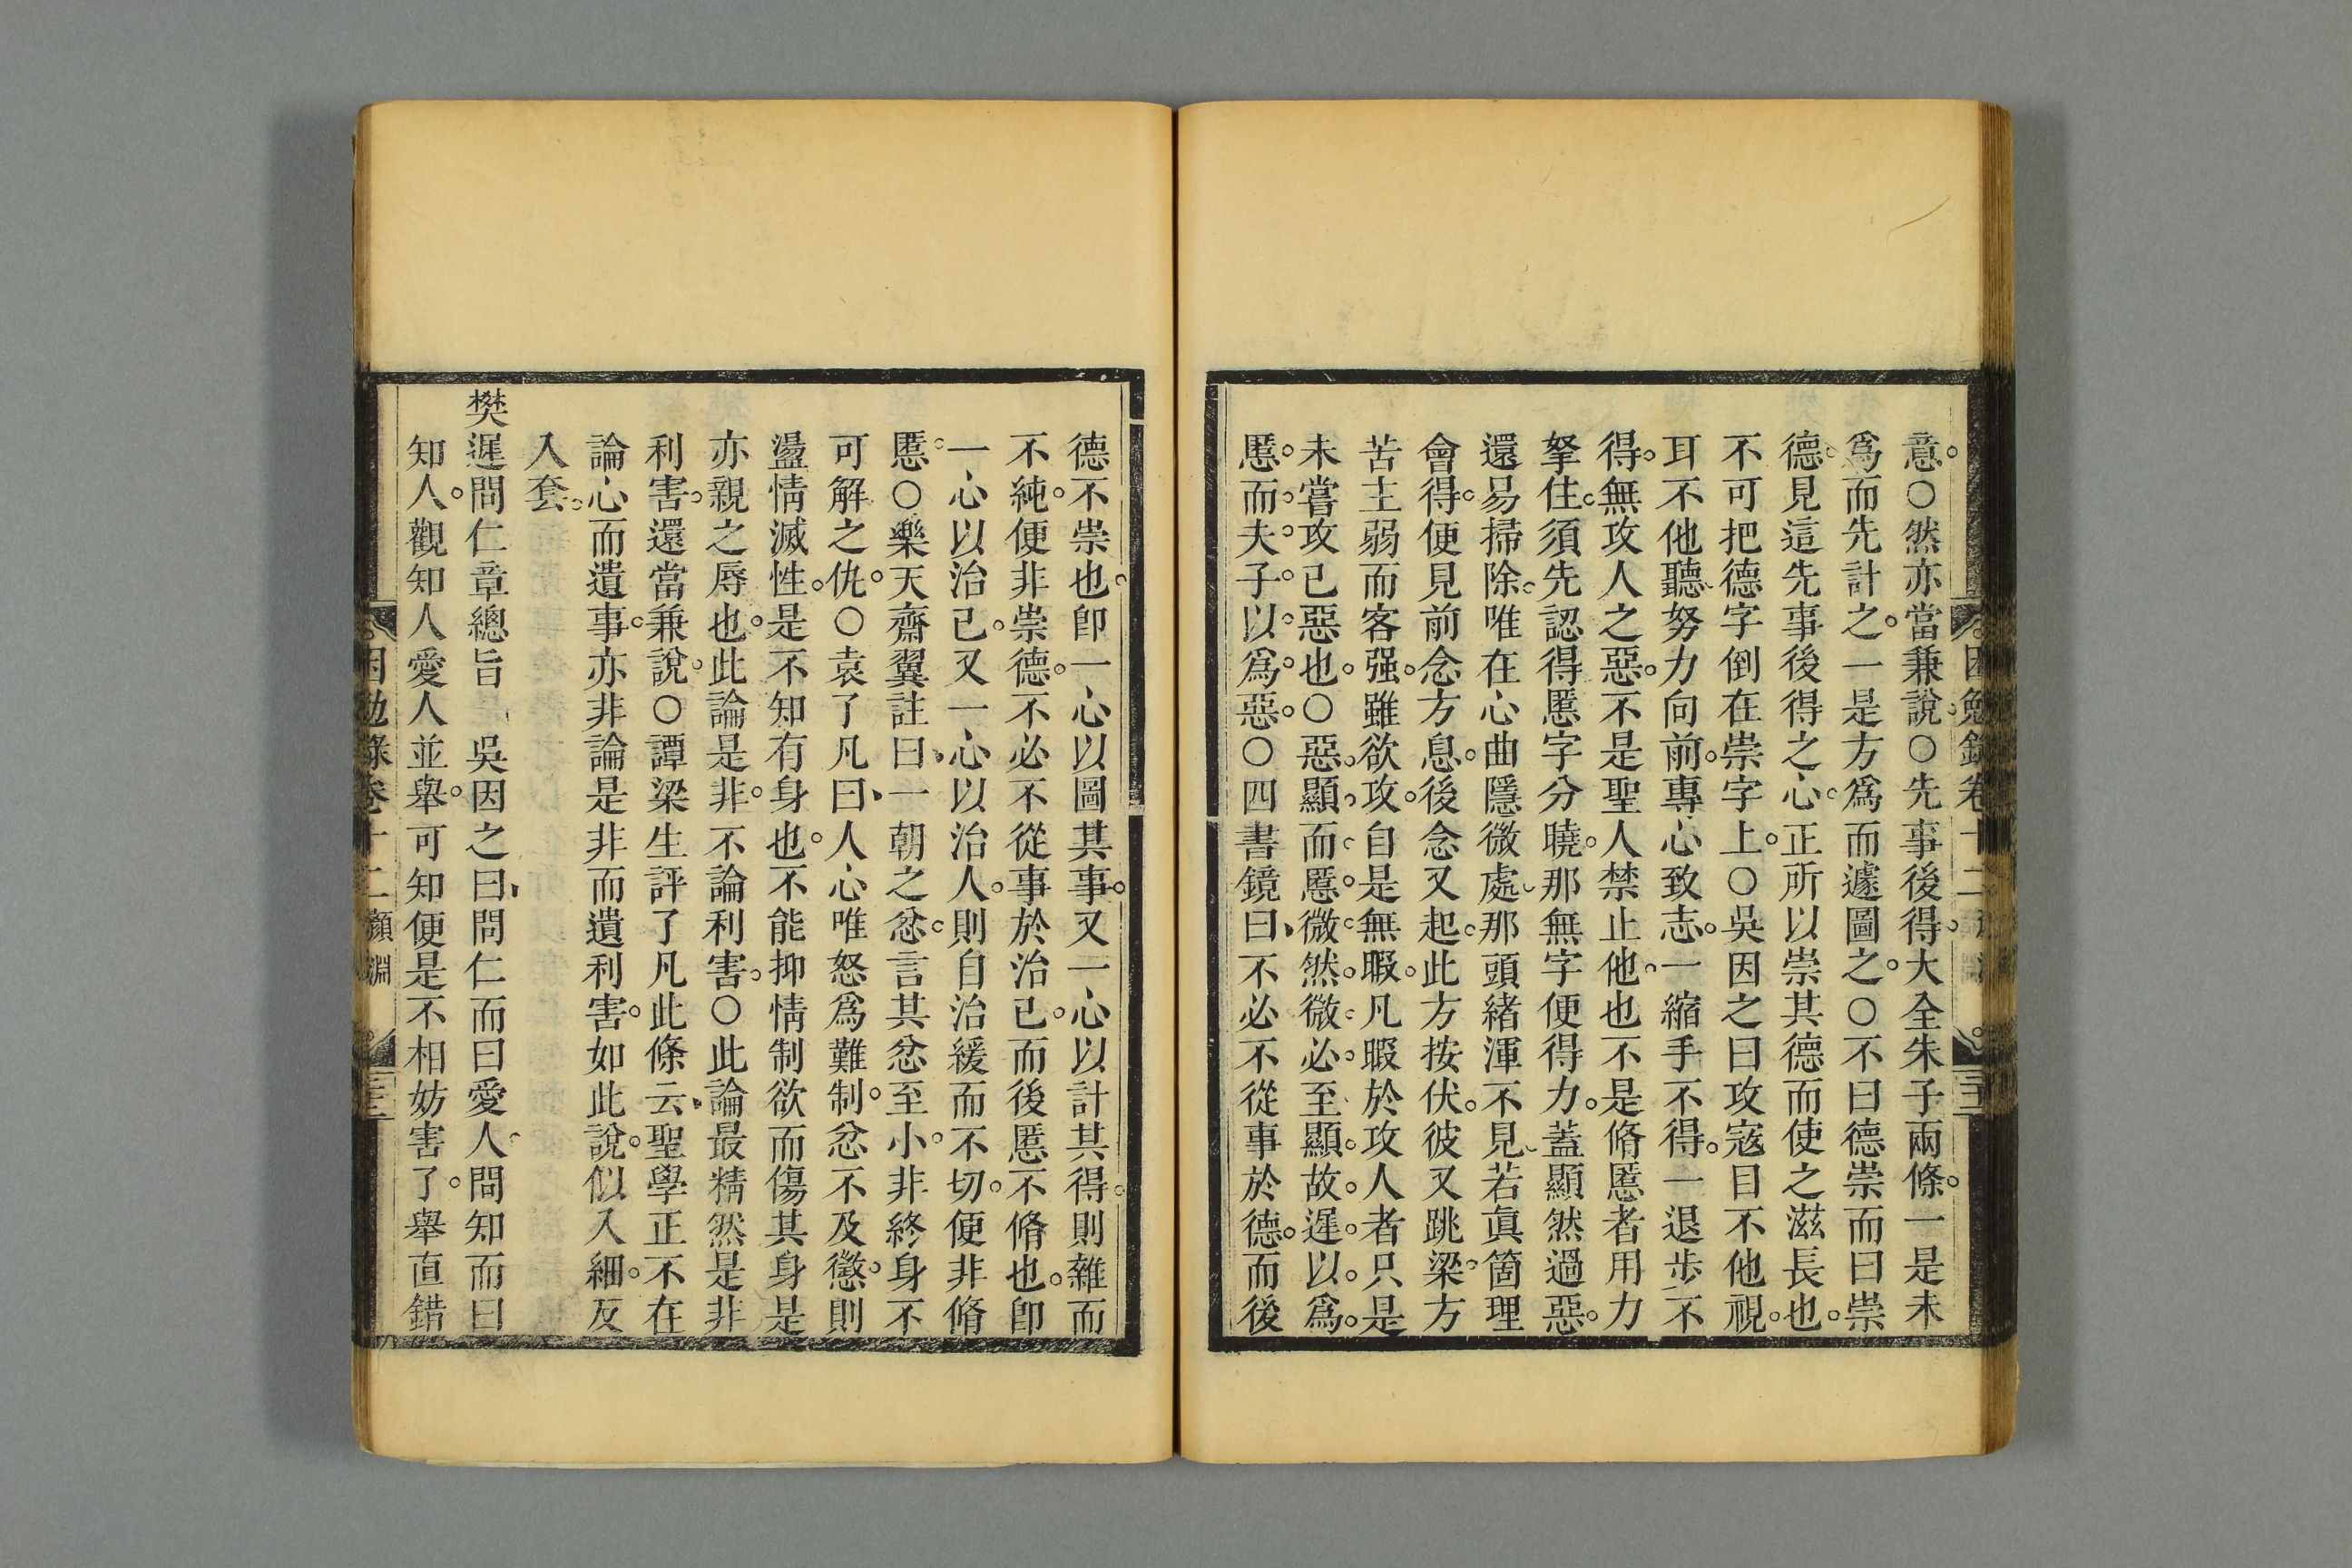 意。○然亦當兼說。○先事後得。大全朱子兩條。一是未
爲而先計之。一是方爲而遽圖之。○不曰德崇而曰崇
德。見這先事後得之心。正所以崇其德而使之滋長也。
不可把德字倒在崇字上。○吳因之曰攻寇目不他視。
耳不他聽、努力向前。專心致志。一縮手不得。一退步不
得。無攻人之惡。不是聖人禁止他。也不是脩慝者用力
拏住。須先認得慝字分曉。那無字便得力。蓋顯然過惡。
還易掃除。唯在心曲隱微處、那頭緒渾不見、若眞箇理
會得。便見前念方息。後念又起。此方按伏。彼又跳梁。方
苦主弱而客强。雖欲攻。自是無暇。凡暇於攻人者只是
未嘗攻已惡也。○惡。顯。而。慝。微。然。微。必。至。顯。故。遲。以。爲。
慝。而。夫。子。以。爲。惡。○四書鏡曰、不必不從事於德。而後
德不崇也。卽一心以圖其事。又一心以計其得。則雜而
不純。便非崇德。不必不從事於治已。而後慝不脩也。卽
一心以治已。又一心以治人。則自治緩而不切。便非脩
慝。○樂天齋翼註曰、一朝之忿。言其忿至小。非終身不
可解之仇。○袁了凡曰、人心唯怒爲難制。忿不及懲。則
盪情滅性。是不知有身也。不能抑情制欲而傷其身是
亦親之辱也。此論是非。不論利害。○此論最精然是非
利害。還當兼說。○譚梁生評了凡此條云、聖學正不在
論心而遺事。亦非論是非而遺利害。如此說。似入細。反
入套。
樊遲問仁章總旨 吳因之曰、問仁而曰愛人。問知而曰
知人。觀知人愛人並舉。可知便是不相妨害了。舉直錯
困勉錄卷十二 顏淵